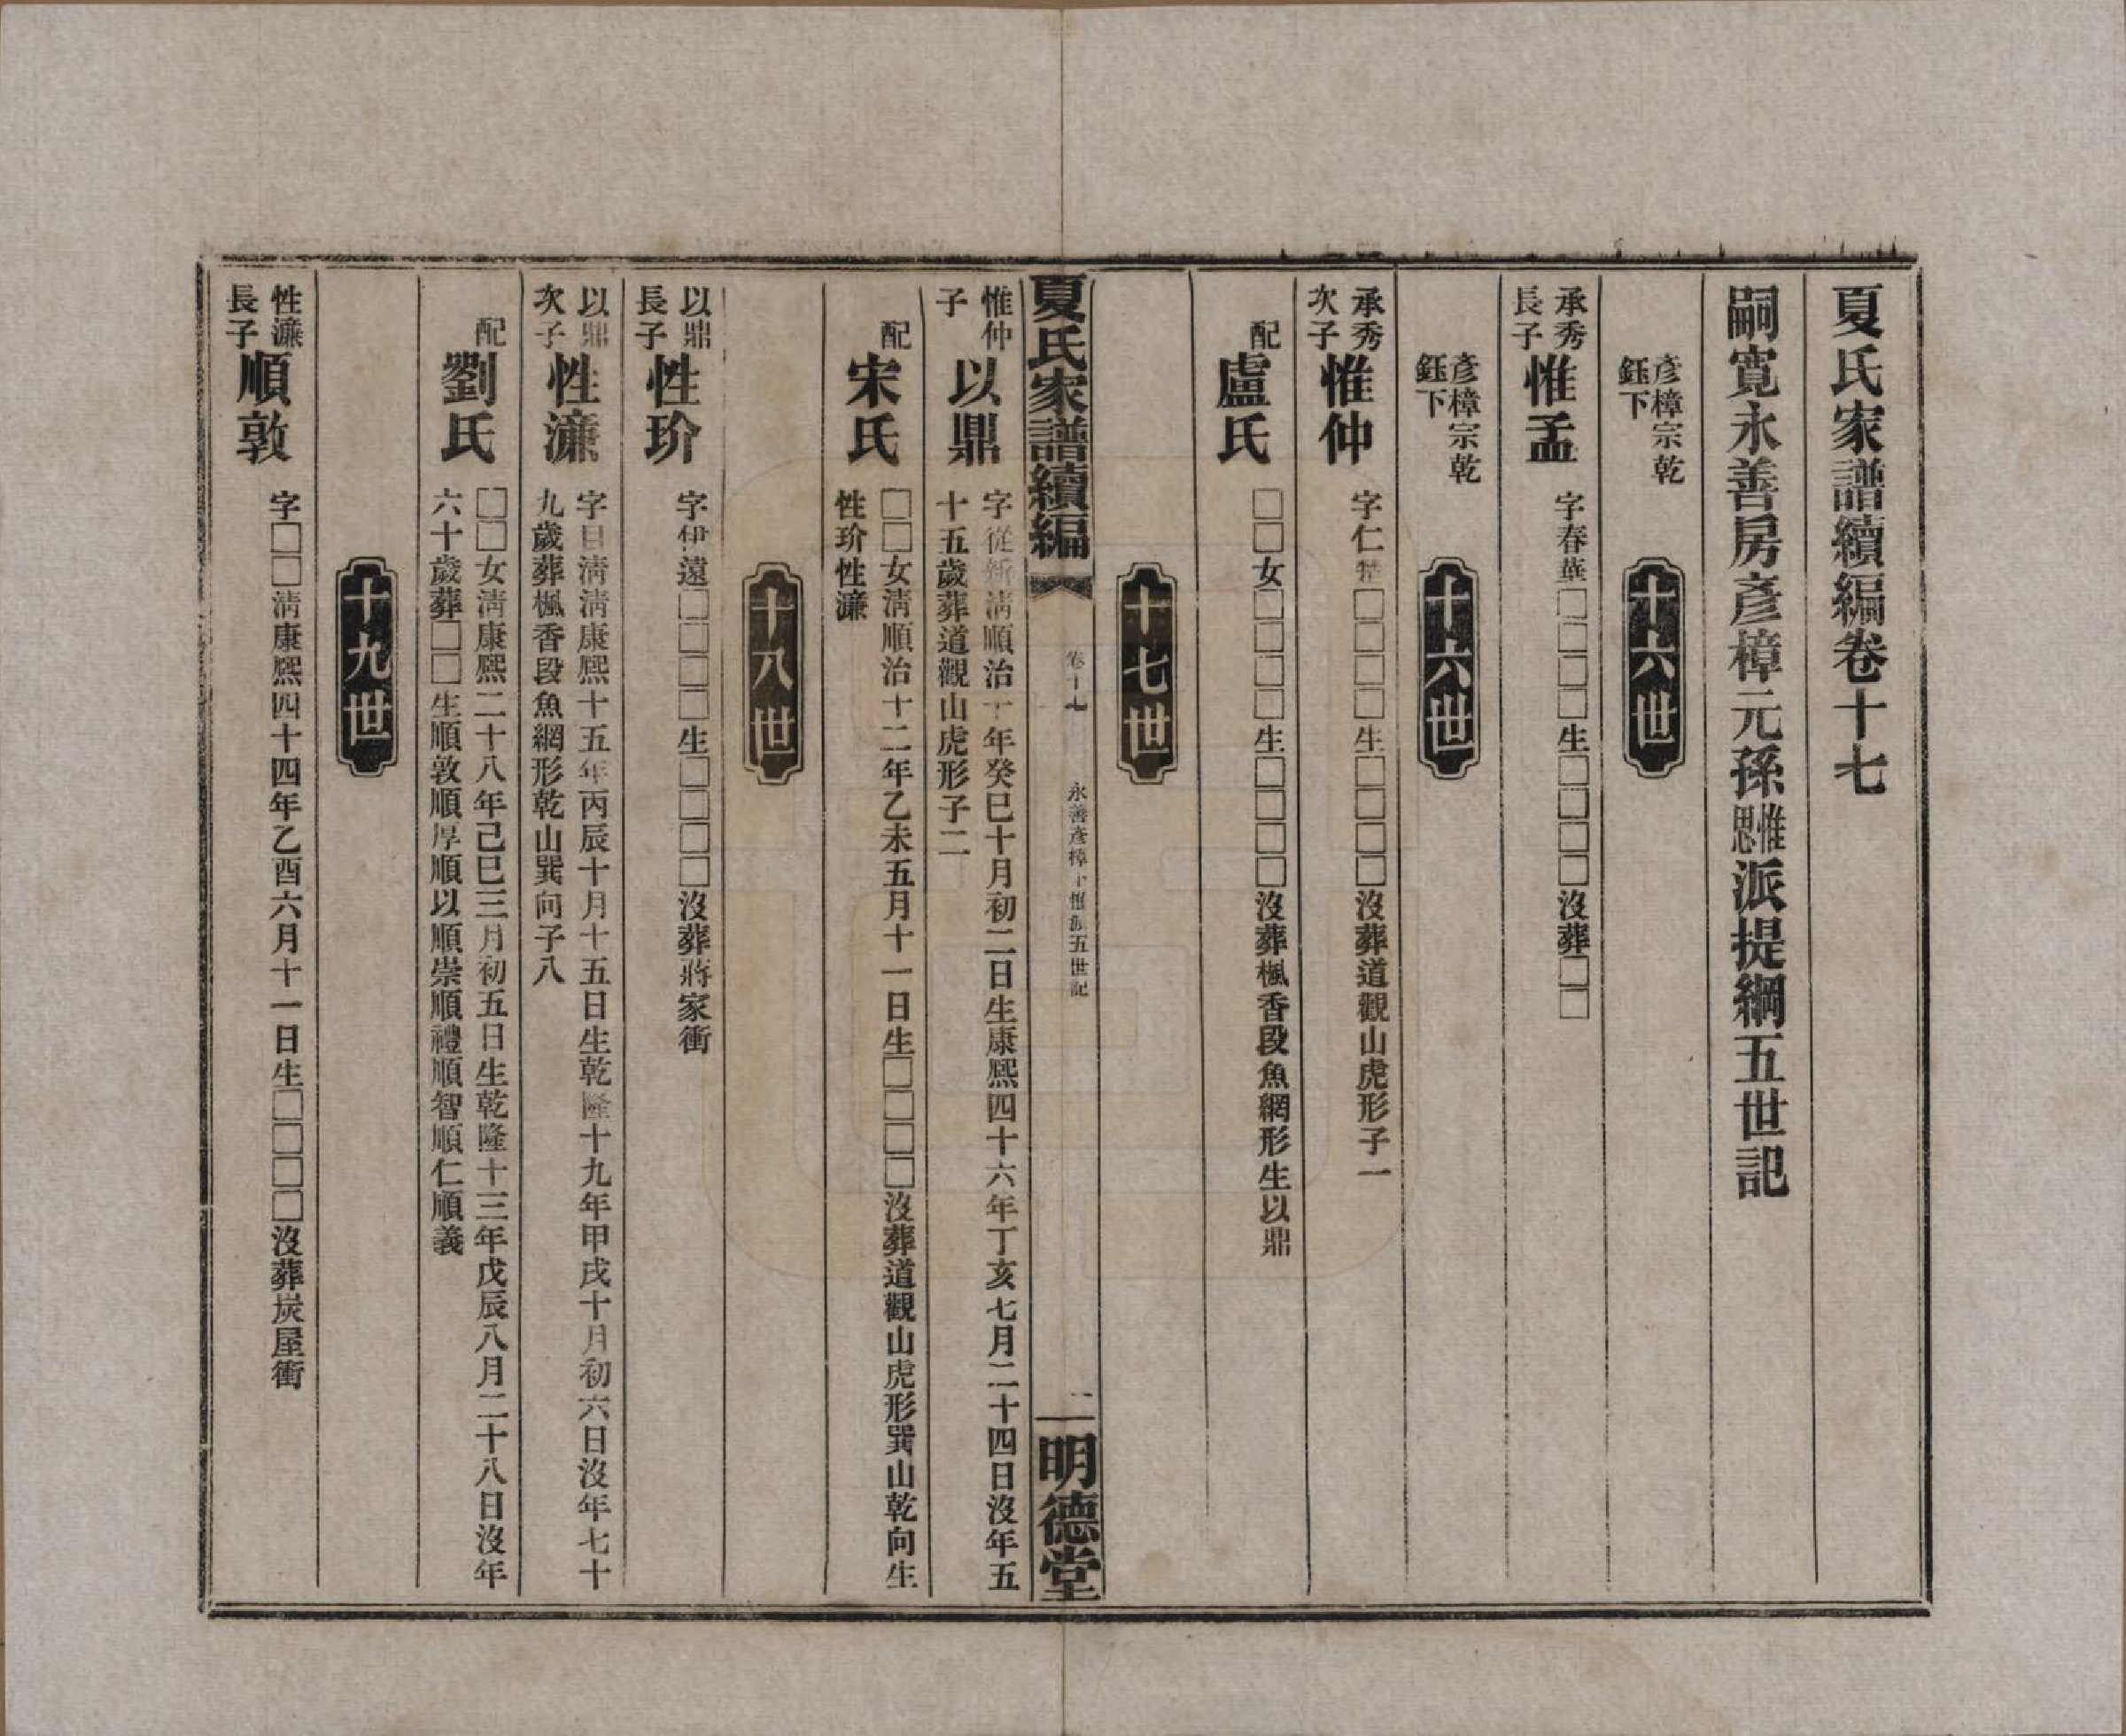 夏氏家譜續編卷十七
嗣寬永善房彥樟元孫惟思派提綱五世記
彥樟宗乾鈺下 十六世
承秀長子 惟孟 字春華□□□□生□□□□沒葬□□
彥樟宗乾鈺下 十六世
承秀次子 惟仲 字仁□□□□生□□□□沒葬道觀山虎形子一
配 盧氏 □□女□□□□生□□□□沒葬楓香段魚網形生以鼎
十七世
夏氏家譜續編 卷十七 永善彥樟 五世記 二 明德堂
惟仲子 以鼎 字從新清順治十年癸巳十月初二日生康熙四十六年丁亥七月二十四日沒年五
十五歲葬道觀山虎形子二
配 宋氏 □□女清順治十二年乙未五月十一日生□□□□沒葬道觀山虎形巽山乾向生
性玠性濂
十八世
以鼎長子 性玠 字伊遠□□□□生□□□□沒葬蔣家衝
以鼎次子 性濂 字日清清康熙十五年丙辰十月十五日生乾隆十九年甲戌十月初六日沒年七十
九歲葬楓香段魚網形乾山巽向子八
配 劉氏 □□女清康熙二十八年己巳三月初五日生乾隆十三年戊辰八月二十八日沒年
六十歲葬□□生順敦順厚順以順崇順禮順智順仁順義
十九世
性濂長子 順敦 字□□清康熙四十四年乙酉六月十一日生□□□□沒葬炭屋衝